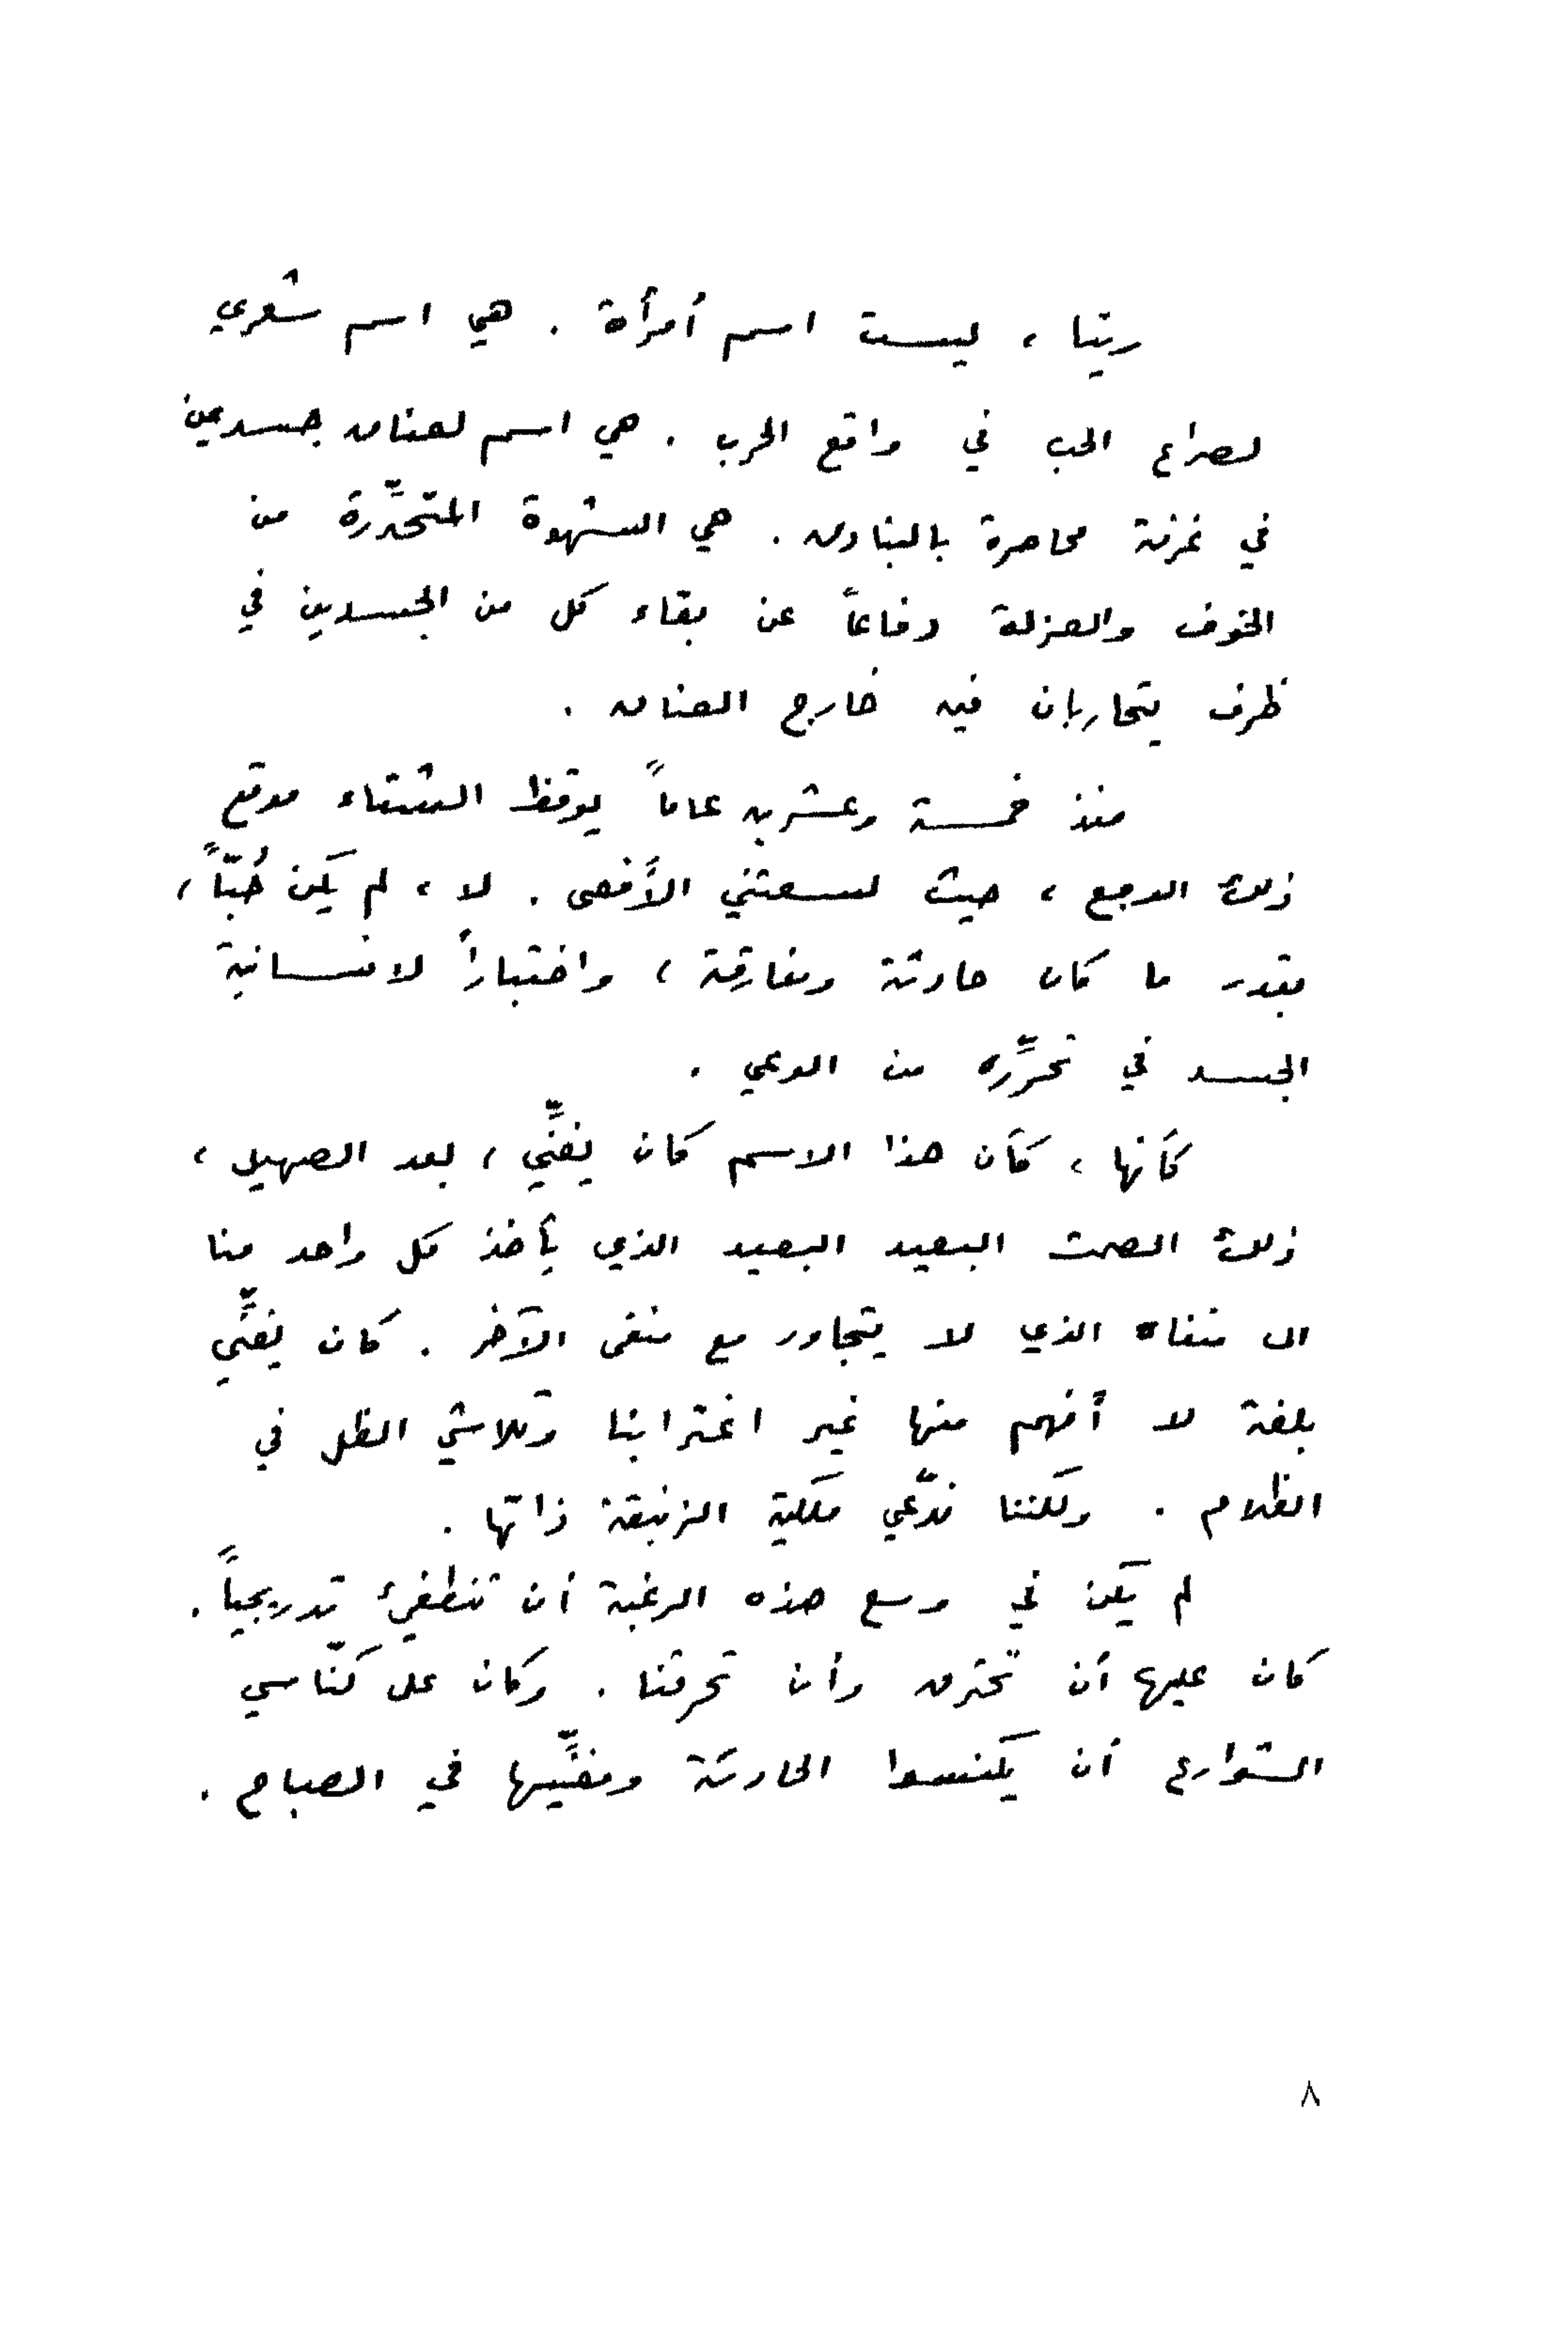 ريتا ، ليست اسم أمرأة . هي اسم شعري
لصراع الحب في واقع الحرب . هي اسم لعناق جسدين
في غرفة محاصرة بالبنادق . هي الشهوة المتحدِّرة من
الخوف والعزلة دفاعاً عن بقاء كل من الجسدين في
ظرف يتحاربان فيه خارج العناق .
منذ خمسة وعشرين عاماً يوقظ الشتاء موقع
ذلك الوجع ، حيث لسعتني الأفعى . لا ، لم يكن حُبّاً ،
بقدر ما كان حادثة ومفارقة ، واختباراً لانسانية
الجسد في تحرُّره من الوعي .
كأنها ، كأن هذا الاسم كان يغنِّي ، بعد الصهيل ،
ذلك الصمت البعيد البعيد الذي يأخذ كل واحد منا
الى منفاه الذي لا يتجاور مع منفى الآخر . كان يغنِّي
بلغة لا أفهم منها غير اغترابنا وتلاشي الظل في
الظلام . ولكننا ندّعي ملكية الزنبقة ذاتها .
لم يكن في وسع هذه الرغبة أن تنطفئ تدريجياً .
كان عليها أن تحترق وأن تحرقنا . وكان على كنّاسي
الشوارع أن يكنسوا الحادثة ومغنِّيها في الصباح .
٨